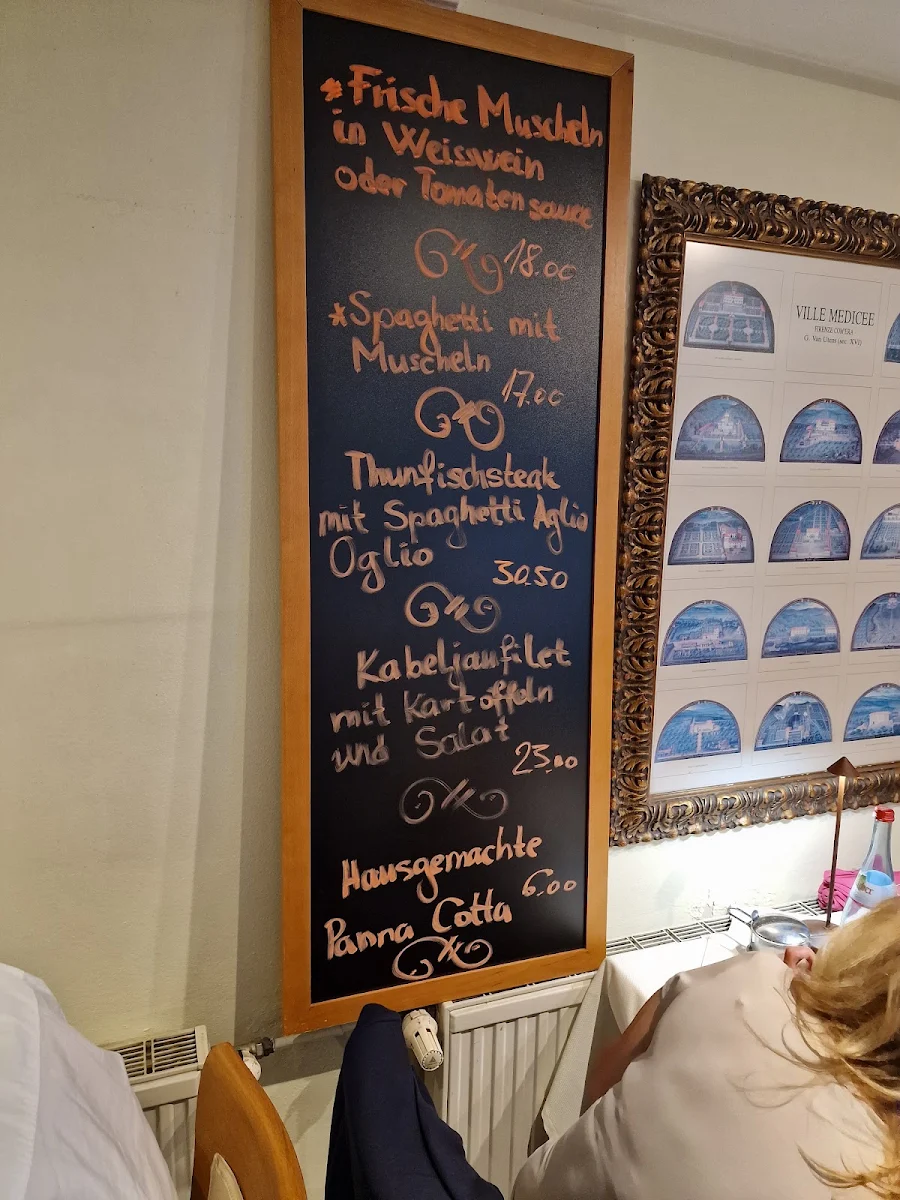 *Frische Muscheln
in Weisswein
oder Tomatensauce
18.00
*Spaghetti mit
Muscheln
17.00
Thunfischsteak
mit Spaghetti Aglio
Oglio
30.50
Kabeljaufilet
mit Kartoffeln
und Salat
23.00
Hausgemachte
6.00
Panna Cotta
VILLE MEDICEE
FIRENZE COM'ERA
G. Van Utens (sec. XVI)